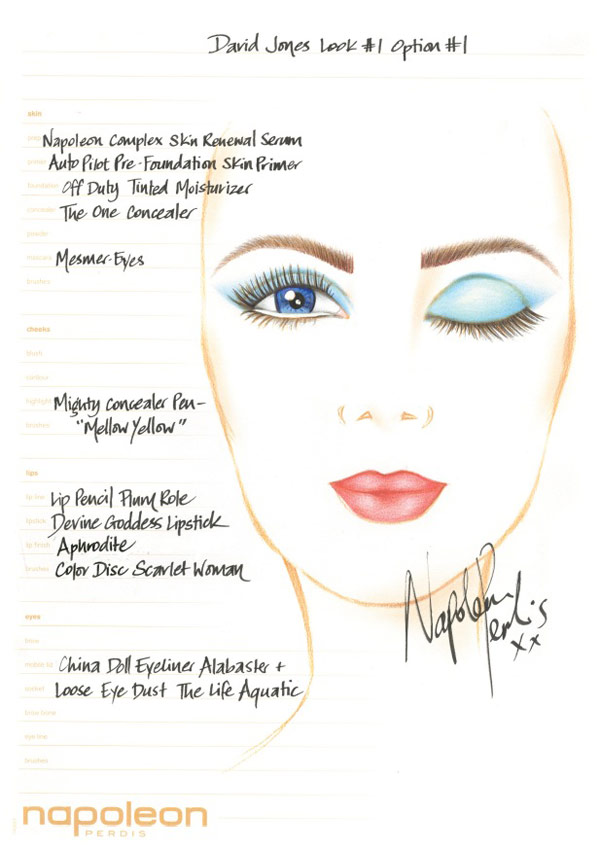 David Jones Look #1 Option #1
skin
Napoleon Complex Skin Renewal Serum
primer Auto Pilot Pre-Foundation Skin Primer
foundation Off Duty Tinted Moisturizer
concealer The One Concealer
powder
mascara Mesmer-Eyes
brushes
cheeks
blush
contour
highlight Mighty Concealer Pen-
brushes "Mellow Yellow"
lips
lip line Lip Pencil Plum Role
lipstick Devine Goddess Lipstick
lip finish Aphrodite
brushes Color Disc Scarlet Woman
Napoleon Perdis
xx
eyes
brow
China Doll Eyeliner Alabaster +
socket Loose Eye Dust The Life Aquatic
brow bone
eye line
brushes
napoleon
PERDIS